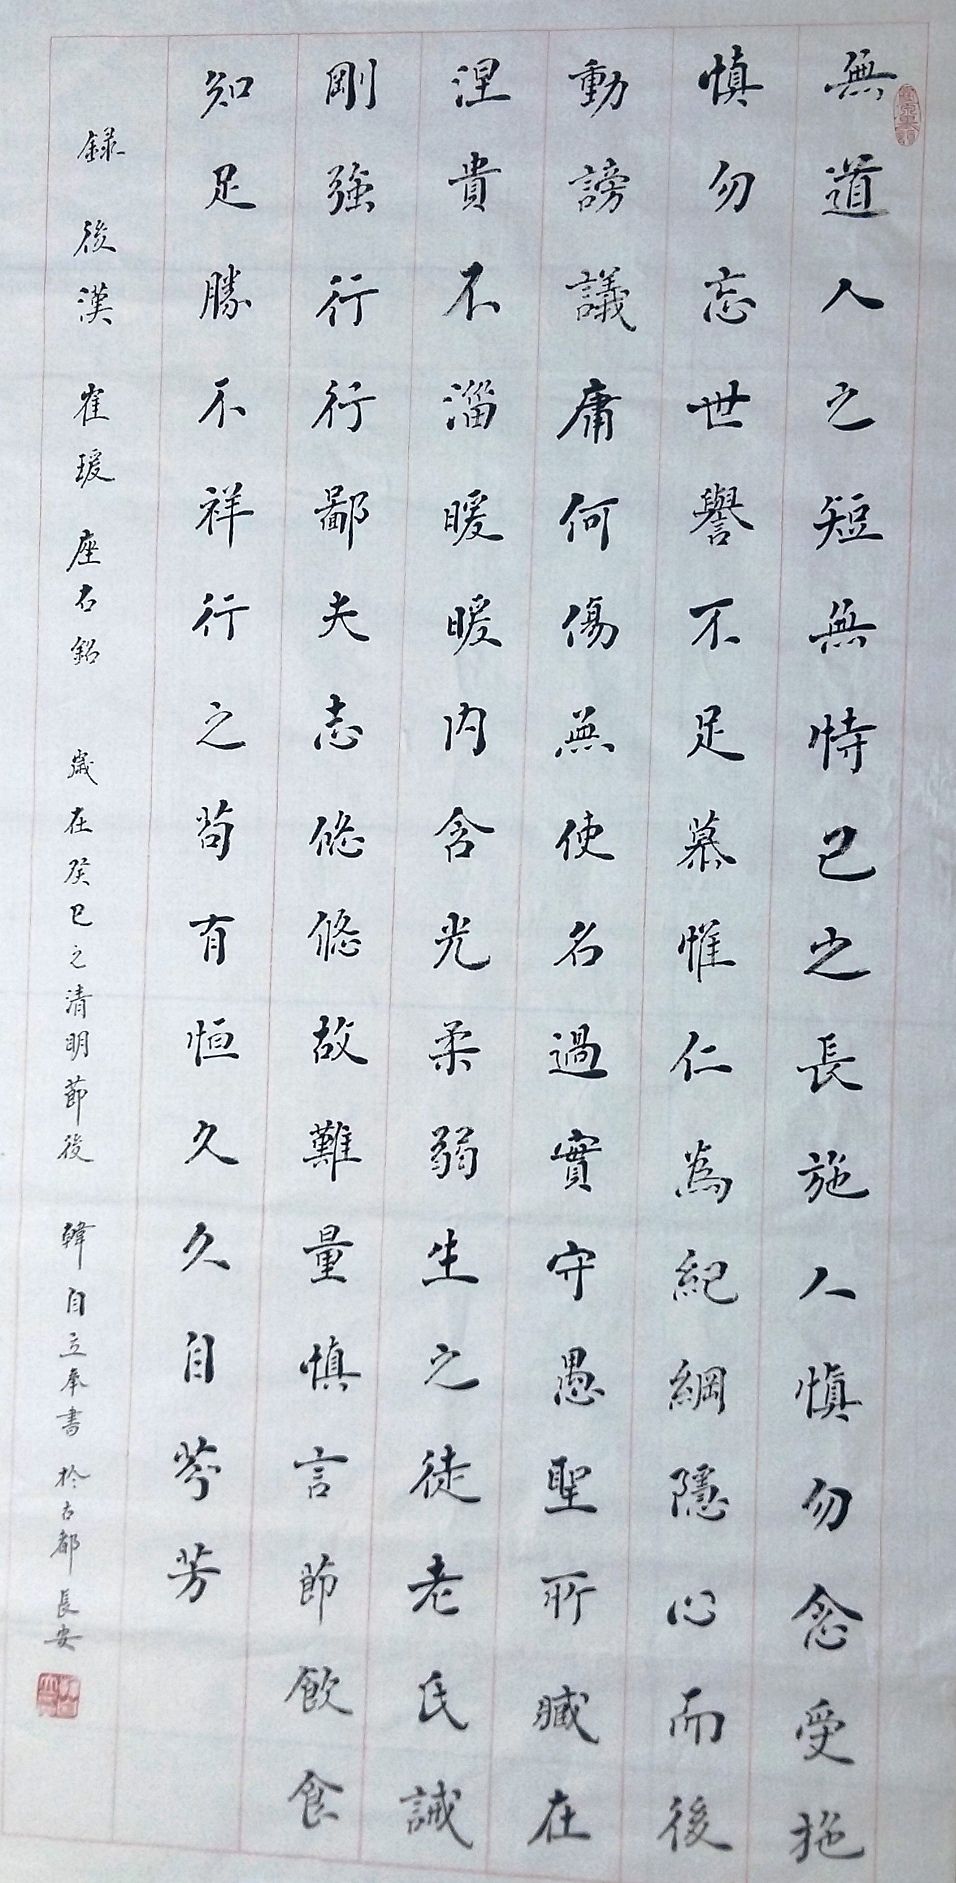 無道人之短無恃己之長施人慎勿念受施
慎勿忘世譽不足慕惟仁為紀綱隱心而後
動謗議庸何傷無使名過實守愚聖所臧在
涅貴不淄暖暖內含光柔弱生之徒老氏誡
剛強行行鄙夫志悠悠故難量慎言節飲食
知足勝不祥行之苟有恒久久自芬芳
錄後漢崔瑗座右銘 歲在癸巳之清明節後 韓自立奉書於古都長安